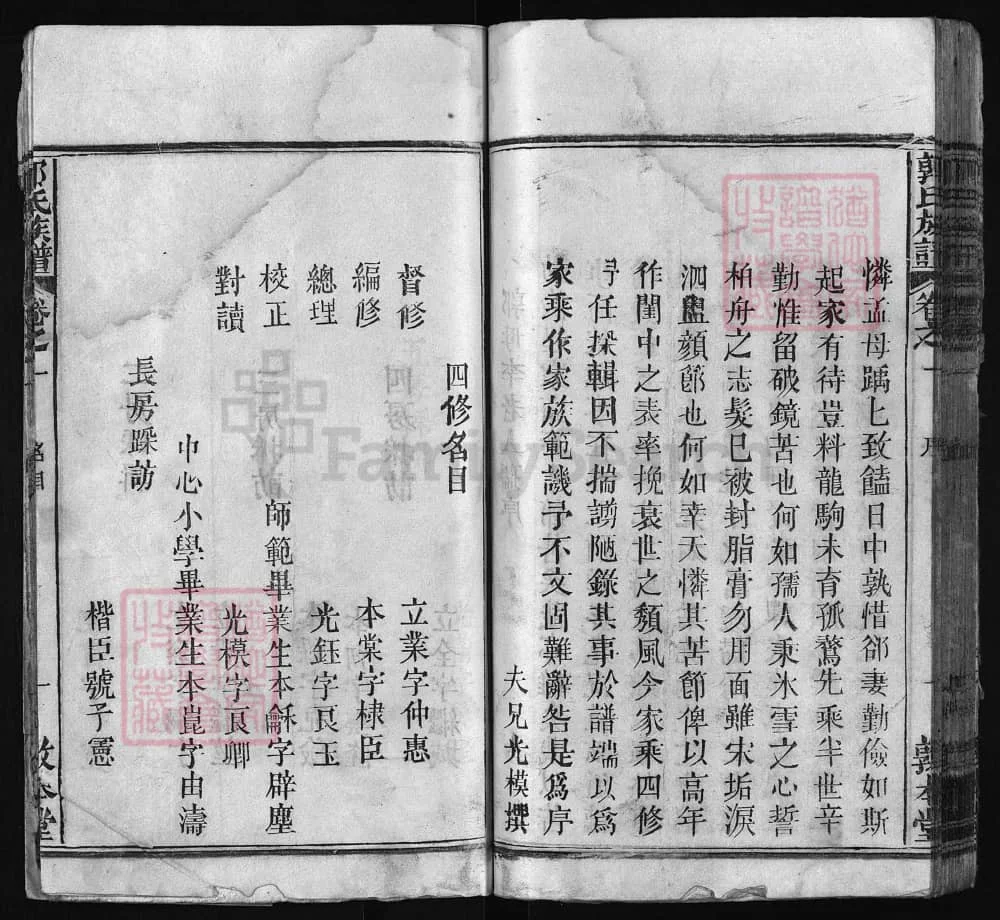 郭氏族譜
卷之一
序
一
敦本堂
憐孟母踽七致饁日中孰惜郤妻勤儉如斯
起家有待豈料龍駒未育孤鶩先乘半世辛
勤惟留破鏡苦也何如孺人秉氷雪之心誓
柏舟之志髮已被封脂膏勿用面雖宋垢淚
泗盥顔節也何如幸天憐其苦節俾以高年
作閨中之表率挽衰世之頽風今家乘四修
予任採輯因不揣譾陋錄其事於譜端以爲
家乘作家族範譏予不文固難辭咎是爲序
夫兄光模撰
四修名目
督修 立業字仲惠
編修 本棠字棣臣
總理 光鈺字良玉
校正 師範畢業生本龢字辟塵
對讀 光模字良卿
中心小學畢業生本崑字由濤
長房踩訪
楷臣號子憲
郭氏族譜
卷之一
名目
一
敦本堂
FamilySearch